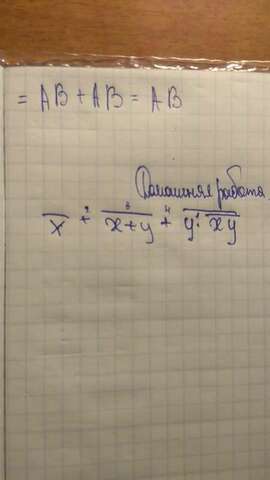 = AB + AB = AB
Домашняя работа
x̅ + x̅+̅y̅ + y̅·̅x̅y̅